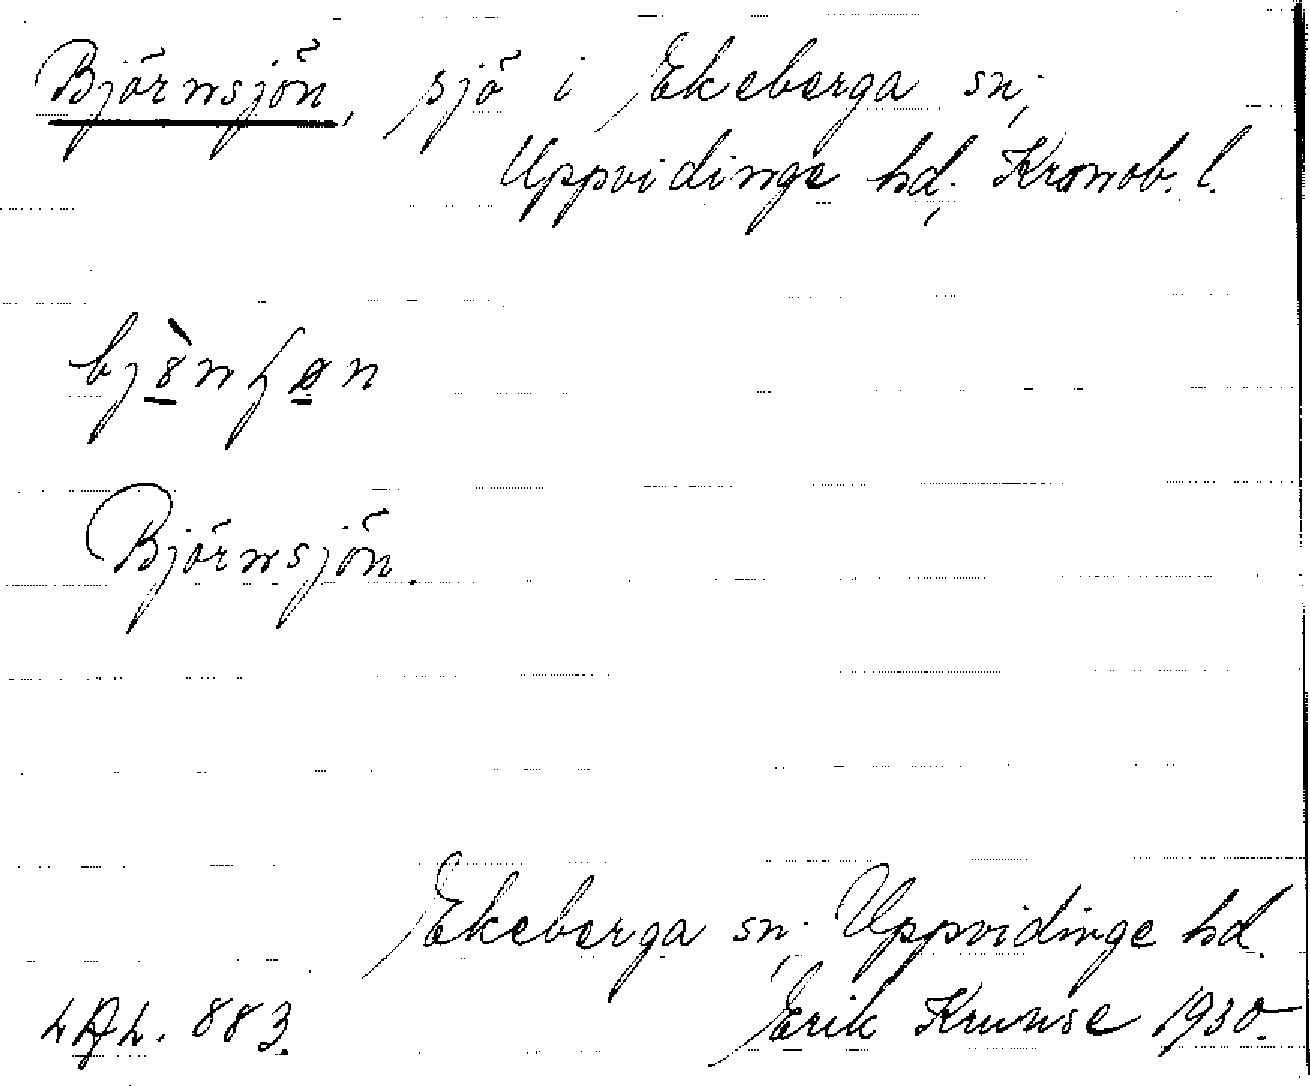 Björnsjön, sjö i Ekeberga sn,
Uppvidinge hd, Kronob. l.
Björnsjön.
Ekeberga sn, Uppvidinge hd.
883. Erik Krunse 1930.